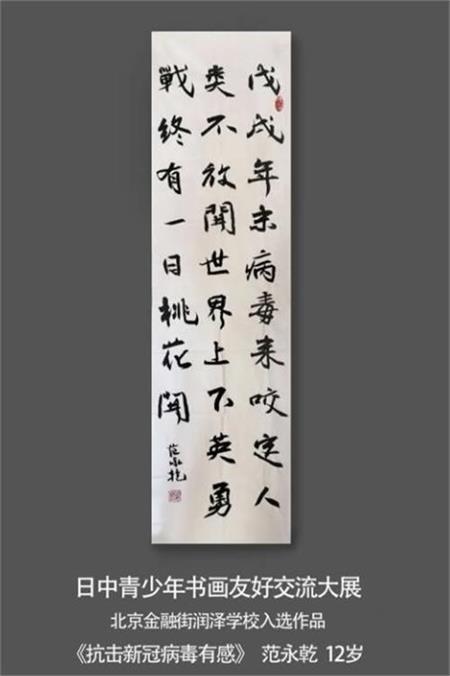 戊戌年末病毒来咬定人
类不放開世界上下英勇
戰终有一日桃花開
范永乾
日中青少年书画友好交流大展
北京金融街润泽学校入选作品
《抗击新冠病毒有感》 范永乾 12岁